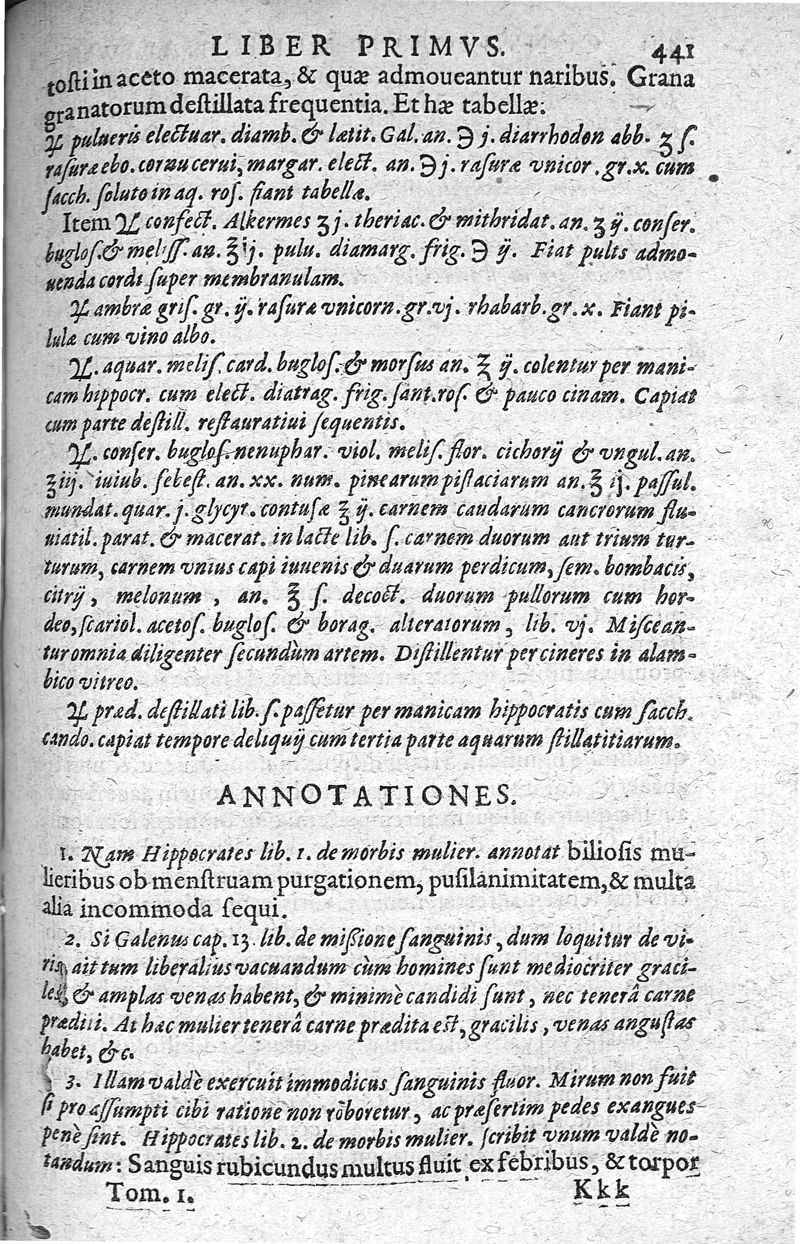 LIBER PRIMVS. 441
tosti in aceto macerata, & quæ admoueantur naribus. Grana
granatorum destillata frequentia. Et hæ tabellæ:
℞ pulueris electuar. diamb. & lætit. Gal. an. ℈ j. diarrhodon abb. ʒ ſ.
rasuræ ebo. cornu cerui, margar. elect. an. ℈ j. rasuræ vnicor. gr. x. cum
sacch. soluto in aq. ros. fiant tabellæ.
Item ℞ confect. Alkermes ʒ j. theriac. & mithridat. an. ʒ ij. conser.
buglos. & meliss. an. ℥ ij. pulu. diamarg. frig. ℈ ij. Fiat pulis admo-
uenda cordi super membranulam.
℞ ambræ gris. gr. ij. rasuræ vnicorn. gr. vj. rhabarb. gr. x. Fiant pi-
lulæ cum vino albo.
℞. aquar. melis. card. buglos. & morsus an. ℥ ij. colentur per mani-
cam hippocr. cum elect. diatrag. frig. sant. ros. & pauco cinam. Capiat
cum parte destill. restauratiui sequentis.
℞. conser. buglos. nenuphar. viol. melis. flor. cichorij & vngul. an.
℥ iij. iuiub. sebest. an. xx. num. pinearum pistaciarum an. ℥ ij. passul.
mundat. quar. j. glycyr. contusæ ℥ ij. carnem caudarum cancrorum flu-
uiatil. parat. & macerat. in lacte lib. ſ. carnem duorum aut trium tur-
turum, carnem vnius capi iuuenis & duarum perdicum, sem. bombacis,
citrij, melonum, an. ℥ ſ. decoct. duorum pullorum cum hor-
deo, scariol. acetos. buglos. & borag. alteratorum, lib. vj. Miscean-
tur omnia diligenter secundùm artem. Distillentur per cineres in alam-
bico vitreo.
℞ præd. destillati lib. ſ. passetur per manicam hippocratis cum sacch.
cando. capiat tempore deliquij cum tertia parte aquarum stillatitiarum.
ANNOTATIONES.
1. Nam Hippocrates lib. 1. de morbis mulier. annotat biliosis mu-
lieribus ob menstruam purgationem, pusilanimitatem, & multa
alia incommoda sequi.
2. Si Galenus cap. 13 lib. de missione sanguinis, dum loquitur de vi-
ris, ait tum liberalius vacuandum cùm homines sunt mediocriter graci-
les, & amplas venas habent, & minimè candidi sunt, nec tenerâ carne
præditi. At hæc mulier tenerâ carne prædita est, gracilis, venas angustas
habet, &c.
3. Illam valdè exercuit immodicus sanguinis fluor. Mirum non fuit
si pro assumpti cibi ratione non roboretur, ac præsertim pedes exangues
penè sint. Hippocrates lib. 2. de morbis mulier. scribit vnum valdè no-
tandum: Sanguis rubicundus multus fluit ex febribus, & torpor
Tom. 1. Kkk